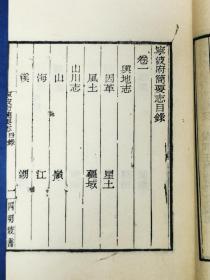 寧波府簡要志目錄
卷一
輿地志
因革 星土
風土 疆域
山川志
山 嶺
海 江
溪 湖
寧波府簡要志目錄
一
四明叢書